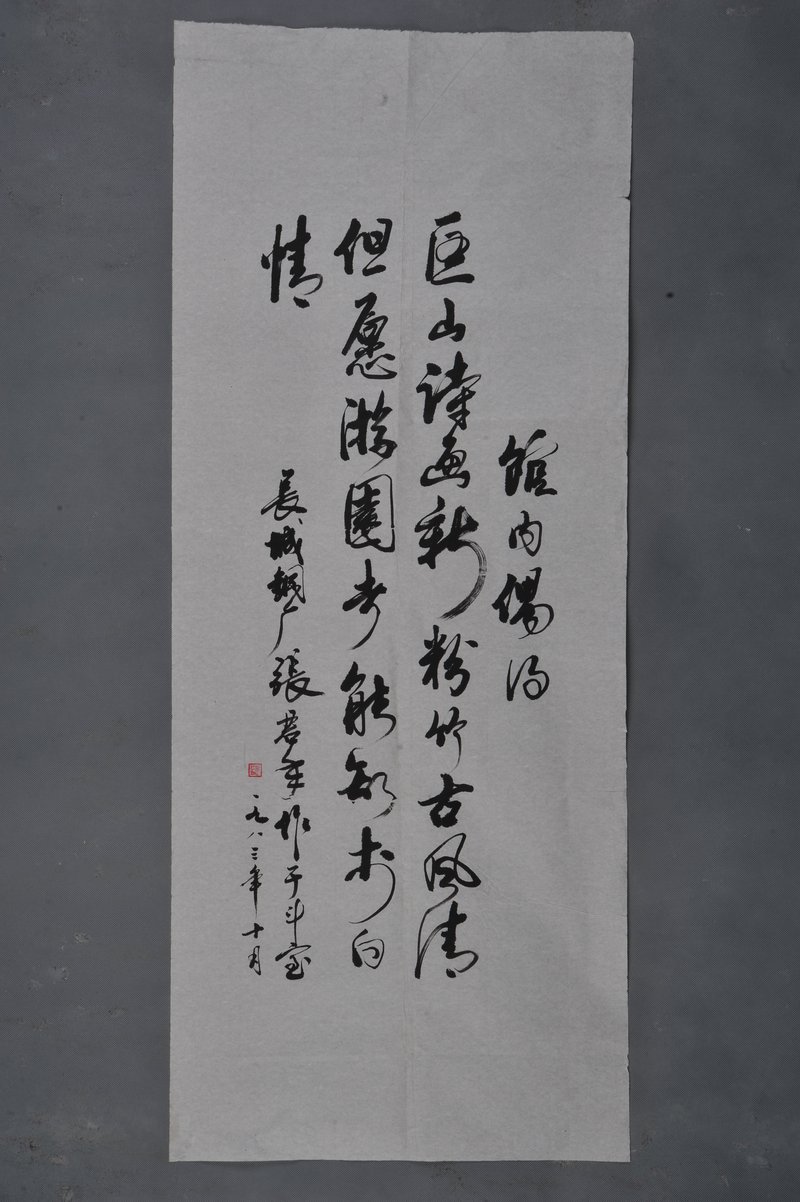 館内偶得
匡山诗画新粉竹古风清
但愿游園者能知李白
情
長城鋼厂張君年作于斗室
一九八三年十月